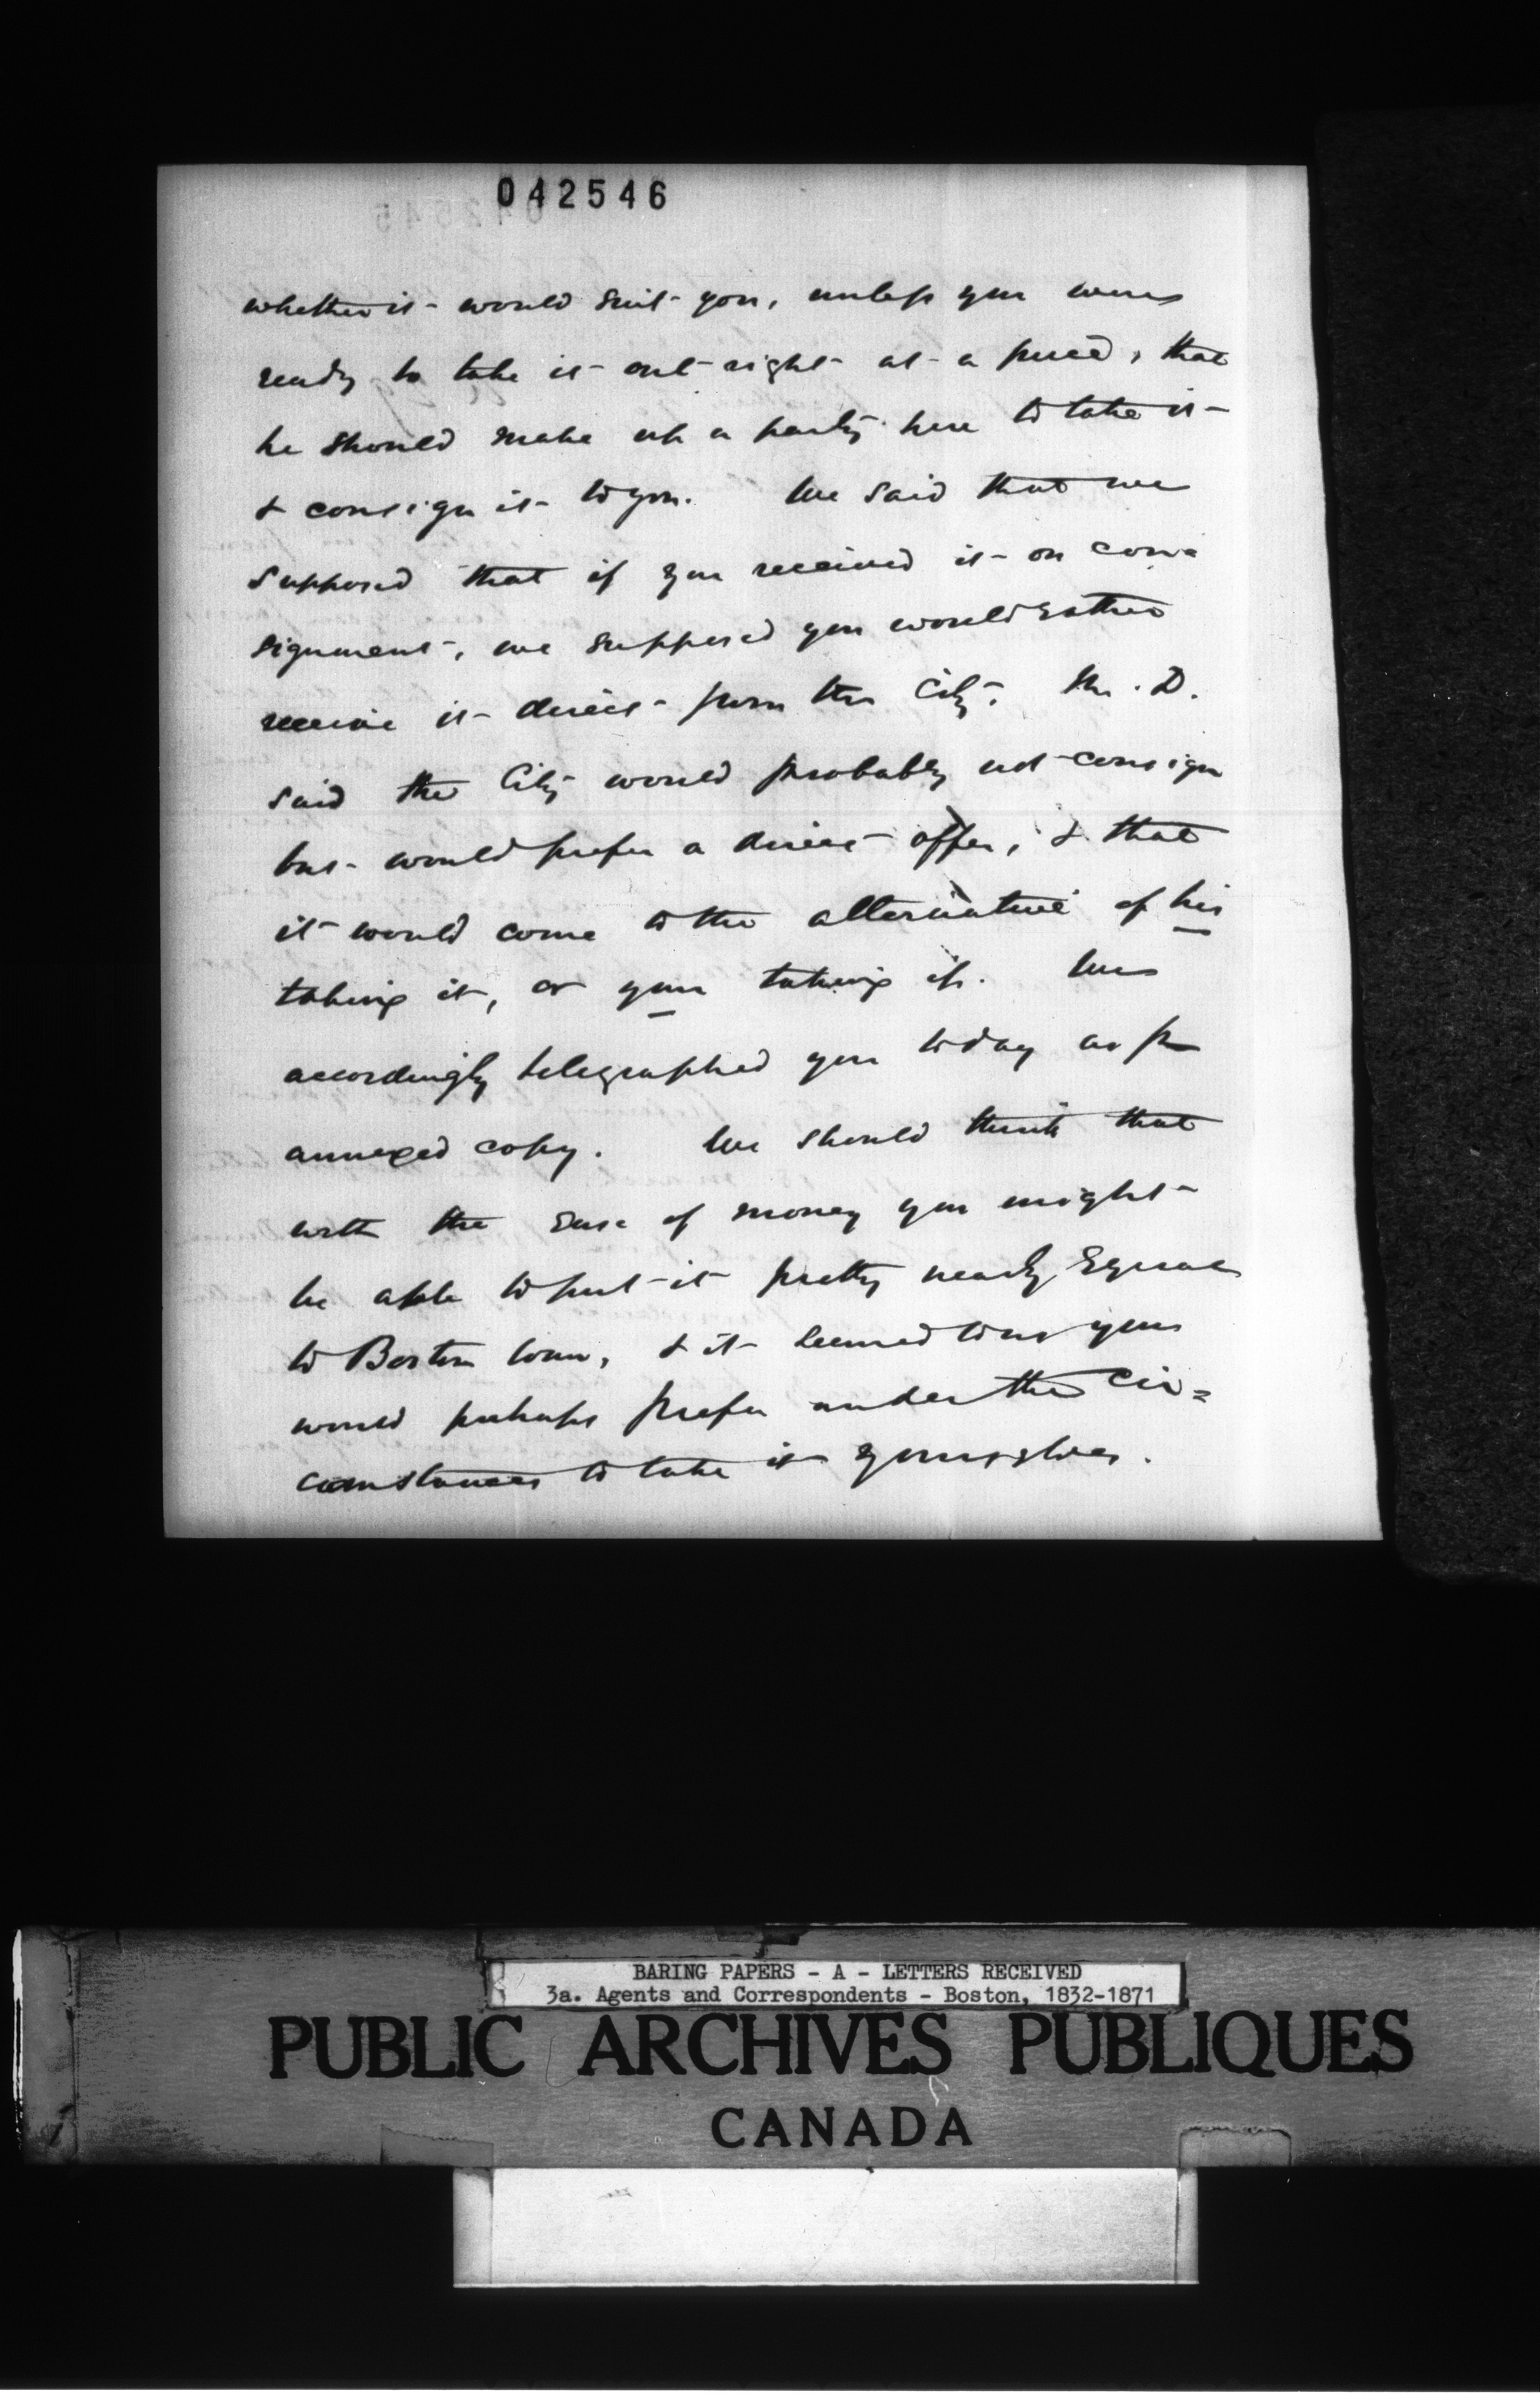 042546
whether it would suit you, unless you were
ready to take it out right at a price, that
he should make up a party here to take it
& consign it to you. We said that we
supposed that if you received it on con=
signment, we supposed you would rather
receive it direct from the City. Mr. D.
said the City would probably not consign
but would prefer a direct offer, & that
it would come to the alternative of his
taking it, or you taking it. We
accordingly telegraphed you today as pr
annexed copy. We should think that
with the ease of money you might
be able to put it pretty nearly equal
to Boston loan, & it seemed to us you
would perhaps prefer under the cir=
cumstances to take it yourselves.
BARING PAPERS - A - LETTERS RECEIVED
3a. Agents and Correspondents - Boston, 1832-1871
PUBLIC ARCHIVES PUBLIQUES
CANADA